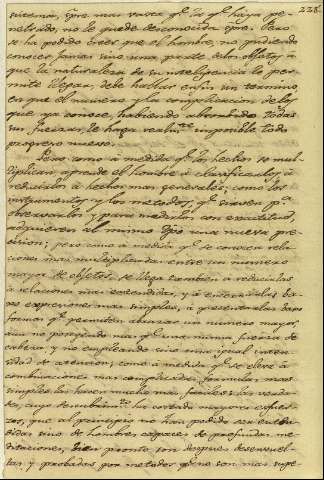 228.
sistema, qᵉ mas vasto qᵉ lo qᵉ haya pe-
netrado, no le quede desconocida spre. Pero
se ha podido creer que el hombre, no pudiendo
conocer jamas sino una parte de los objetos, á
que la naturaleza de su inteligencia le per-
mite llegar, debe hallar enfin un termino,
en que el numero y la complicacion de los
que ya conoce, habiendo absorbido todas
sus fuerzas, le haga realmᵗᵉ imposible todo
progreso nuevo.
Pero como á medida qᵉ los hechos se mul-
tiplican, aprende el hombre á clasificarlos, á
reducirlos á hechos mas generales; como los
instrumentos y los metodos, qᵉ sirven pᵃ
observarlos y para medirlos con exactitud,
adquieren al mismo tpo una nueva pre-
cision; pero como á medida qᵉ se conocen rela-
ciones mas multiplicadas entre un numero
mayor de objetos, se llega tambien á reducirlas
á relaciones mas estendidas, y á encerrarlas ba-
xo expresiones mas simples, á presentarlas baxo
formas qᵉ permiten abrazar un numero mayor,
aun no poseyendo mas qᵉ una misma fuerza de
cabeza, y no empleando sino una igual inten-
sidad de atencion; como á medida qᵉ se eleve á
combinaciones mas complicadas, formulas mas
simples las hacen mucho mas faciles; las verda-
des, cuyo descubrimᵗᵒ ha costado mayores esfuer-
zos, que al principio no han podido ser enten-
didas sino de hombres capaces de profundas me-
ditaciones, bien pronto son despues desenvuel-
tas y probadas por metodos qᵉ no son mas supe-